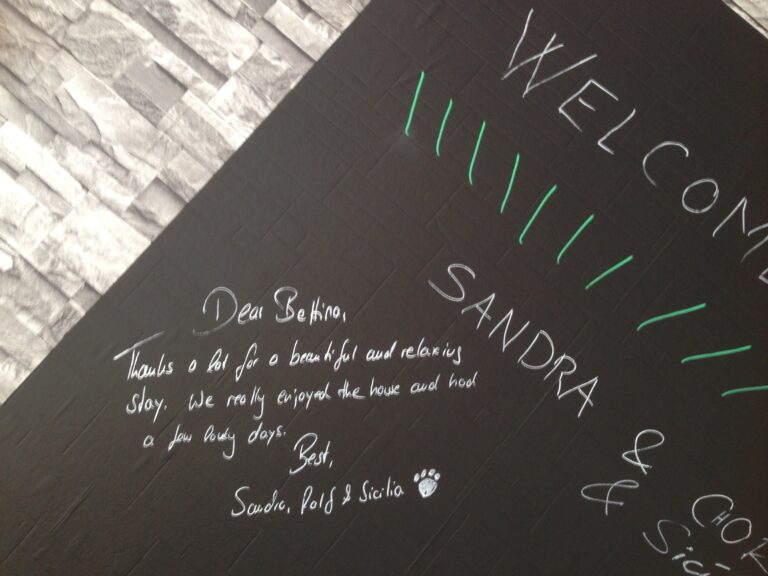 WELCOME
SANDRA
& CHOR
& Sici
Dear Bettina,
Thanks a lot for a beautiful and relaxing
stay. We really enjoyed the house and had
a few lovely days.
Best,
Sandra, Ralf & Sicilia